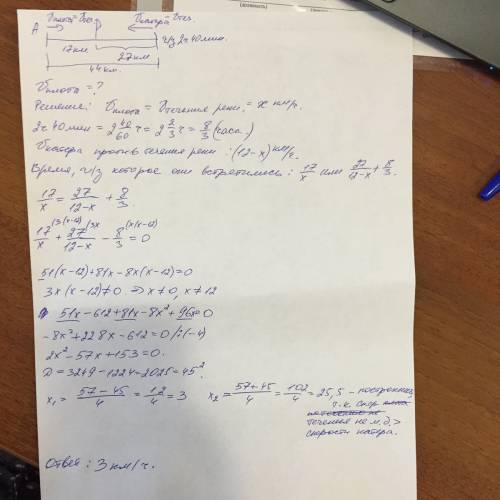 Vплота = Vтеч. Vкатера - Vтеч
A
ч/з 2ч 40 мин.
17км
27км
44 км.
Vплота = ?
Решение: Vплота = Vтечения реки. = x км/ч.
2ч 40 мин = 2 40/60 ч = 2 2/3 ч = 8/3 (часа.)
Vкатера против течения реки : (12-x) км/ч.
Время, ч/з которое они встретились: 17/x или 27/12-x + 8/3.
17/x = 27/12-x + 8/3.
17/x /3(x-12) + 27/12-x /3x - 8/3 /x(x-12) = 0
51(x-12)+81x-8x(x-12)=0
3x(x-12)≠0 ⇒ x≠0, x≠12
51x-612+81x-8x²+96x=0
-8x²+228x-612=0 /:(-4)
2x²-57x+153=0.
D=3249-1224=2025=45².
x₁ = 57-45/4 = 12/4 = 3 x₂ = 57+45/4 = 102/4 = 25,5 -
т.к. скор.
течения не м.д. >
скорости катера.
Ответ: 3 км/ч.